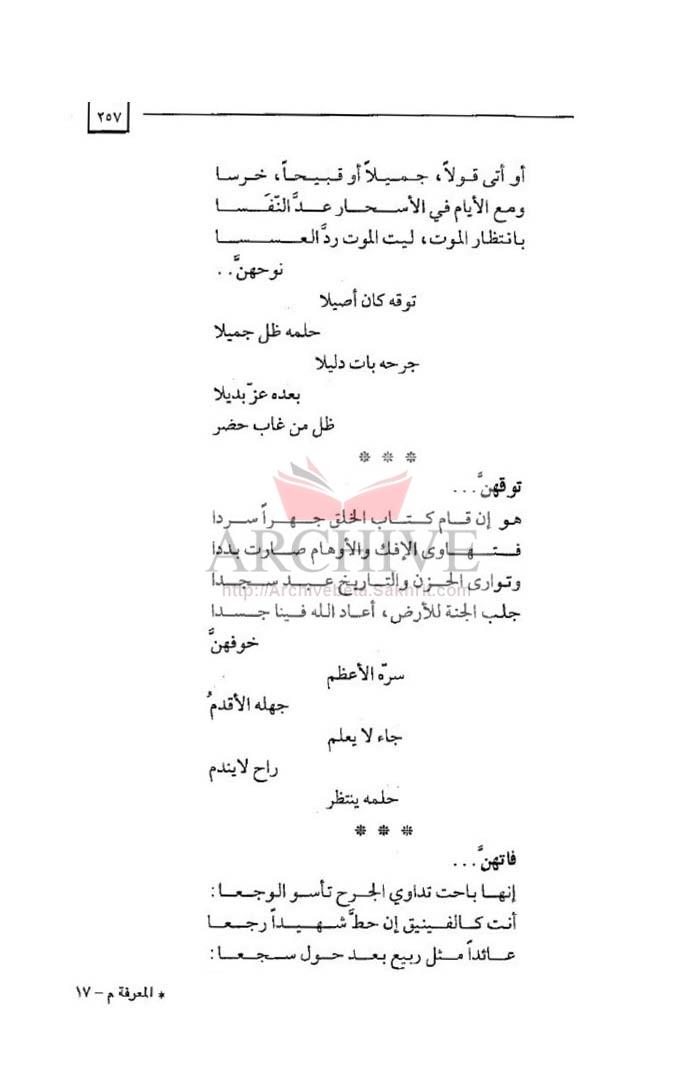 ٢٥٧
أو أتى قولاً، جميلاً أو قبيحاً، خرسا
ومع الأيام في الأسحار عدَّ النَّفَسا
بانتظار الموت، ليت الموت ردَّ العسسا
نوحهنَّ..
توقه كان أصيلا
حلمه ظل جميلا
جرحه بات دليلا
بعده عزّ بديلا
ظل من غاب حضر
* * *
توقهنَّ...
هو إن قام كتاب الخلق جهراً سردا
فتهاوى الإفك والأوهام صارت بددا
وتوارى الحزن والتاريخ عبد سجدا
جلب الجنة للأرض، أعاد الله فينا جسدا
خوفهنَّ
سرّه الأعظم
جهله الأقدمُ
جاء لا يعلم
راح لايندم
حلمه ينتظر
* * *
فاتهنَّ...
إنها باحت تداوي الجرح تأسو الوجعا:
أنت كالفينيق إن حطَّ شهيداً رجعا
عائداً مثل ربيع بعد حول سجعا:
* المعرفة م - ١٧
ARCHIVE
http://Archivebeta.Sakhrit.com